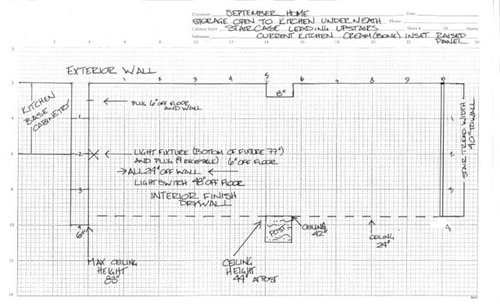 SEPTEMBER HOME
STORAGE OPEN TO KITCHEN UNDERNEATH
STAIRCASE LEADING UPSTAIRS
CURRENT KITCHEN CREAM (BONE) INSET RAISED
PANEL
EXTERIOR WALL
KITCHEN
BASE
CABINETRY
1
2
3
4
5
6
7
8
9
10
8"
1
2
3
4
PLUG 6" OFF FLOOR
AND WALL
LIGHT FIXTURE (BOTTOM OF FIXTURE 77")
6" OFF FLOOR
ALL 39" OFF WALL
LIGHTSWITCH 48" OFF FLOOR
INTERIOR FINISH
DRYWALL
1
2
3
4
STAIR TREAD WIDTH
40" TO WALL
6"
POST
MAX CEILING
HEIGHT
83"
CEILING
HEIGHT
44" AT POST
CEILING
42"
CEILING
24"